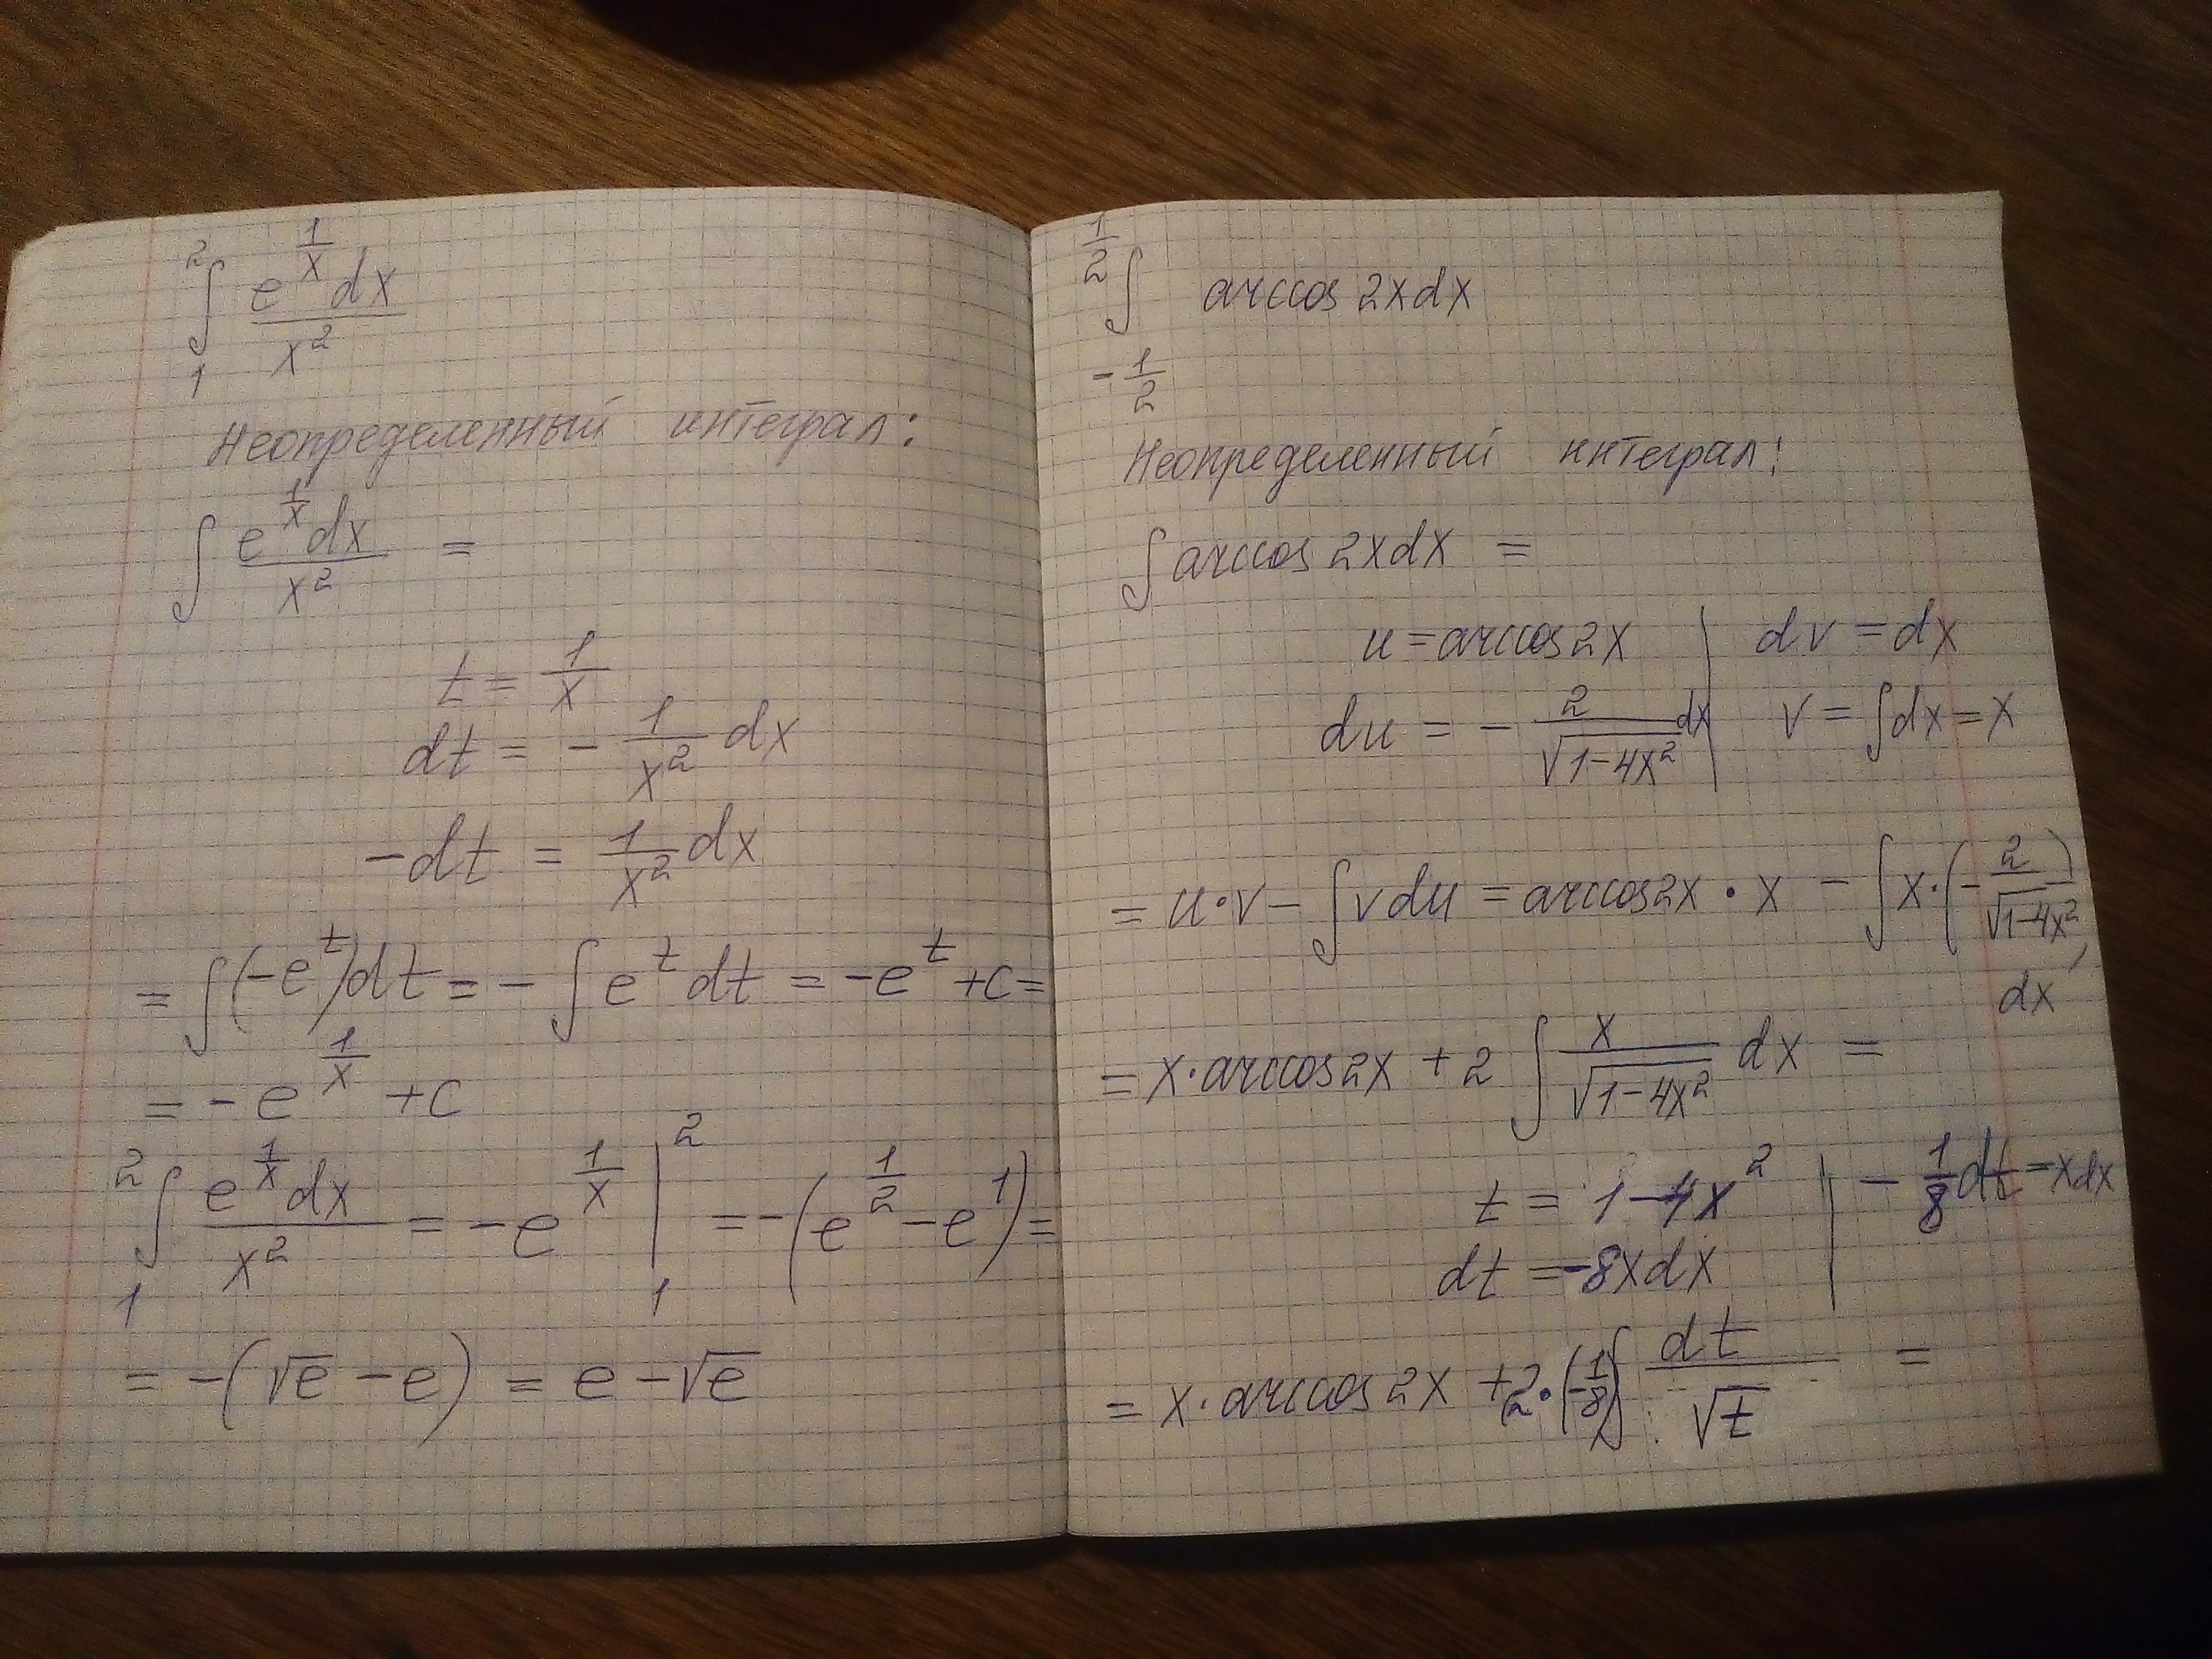 ∫₁² e^(1/x)dx / x²
Неопределенный интеграл:
∫ e^(1/x)dx / x² =
t = 1/x
dt = - 1/x² dx
-dt = 1/x² dx
= ∫(-e^t)dt = - ∫e^t dt = -e^t + c =
= -e^(1/x) + c
∫₁² e^(1/x)dx / x² = -e^(1/x) |₁² = -(e^(1/2) - e^1) =
= -(√e - e) = e - √e
∫_(-1/2)^(1/2) arccos 2x dx
Неопределенный интеграл:
∫ arccos 2x dx =
u = arccos 2x | dv = dx
du = - 2/√(1-4x²) dx | v = ∫dx = x
= u·v - ∫v du = arccos 2x · x - ∫x·(- 2/√(1-4x²))
dx
= x·arccos 2x + 2 ∫ x/√(1-4x²) dx =
t = 1-4x² | - 1/8 dt = x dx
dt = -8x dx
= x·arccos 2x + 2·(-1/8)∫ dt/√t =